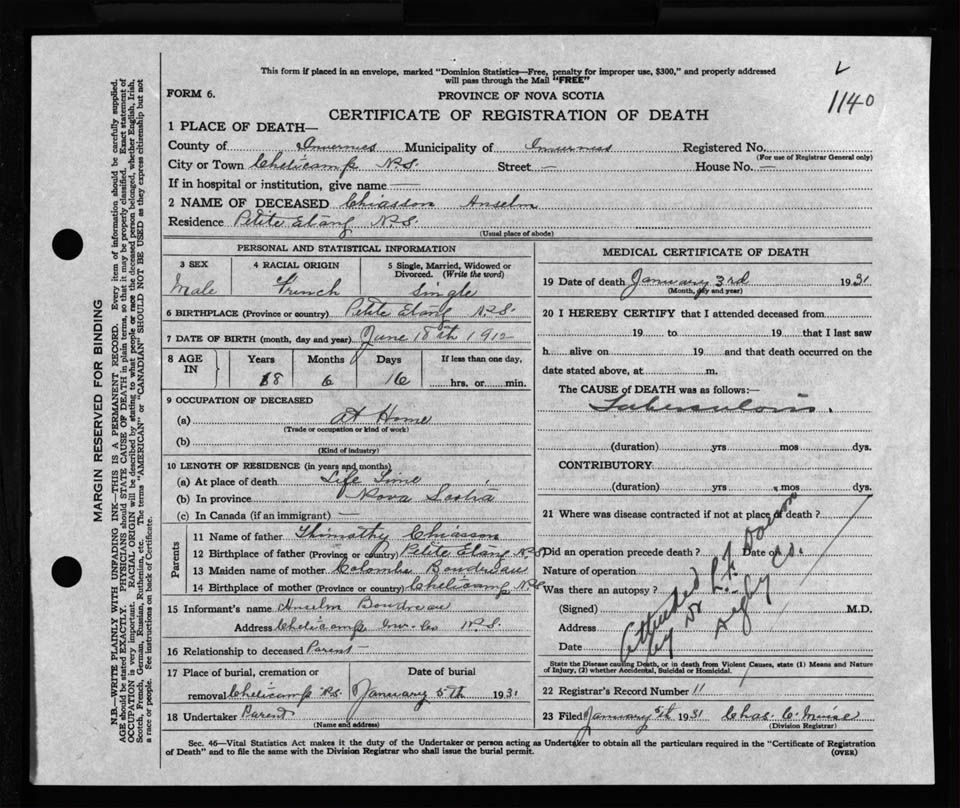 This form if placed in an envelope, marked "Dominion Statistics—Free, penalty for improper use, $300," and properly addressed
will pass through the Mail "FREE"
1140
FORM 6.
PROVINCE OF NOVA SCOTIA
CERTIFICATE OF REGISTRATION OF DEATH
1 PLACE OF DEATH—
County of Inverness Municipality of Inverness Registered No.
(For use of Registrar General only)
City or Town Cheticamp N.S. Street — House No. —
If in hospital or institution, give name —
2 NAME OF DECEASED Chiasson Anselm
Residence Petite Etang N.S.
(Usual place of abode)
PERSONAL AND STATISTICAL INFORMATION
3 SEX
Male
4 RACIAL ORIGIN
French
5 Single, Married, Widowed or Divorced. (Write the word)
Single
6 BIRTHPLACE (Province or country) Petite Etang N.S.
7 DATE OF BIRTH (month, day and year) June 18th 1912
8 AGE IN
Years Months Days If less than one day,
18 6 16 hrs. or min.
9 OCCUPATION OF DECEASED
(a) At Home
(Trade or occupation or kind of work)
(b)
(Kind of industry)
10 LENGTH OF RESIDENCE (in years and months)
(a) At place of death Life Time
(b) In province Nova Scotia
(c) In Canada (if an immigrant) —
Parents
11 Name of father Thimathy Chiasson
12 Birthplace of father (Province or country) Petite Etang N.S.
13 Maiden name of mother Colombe Boudreau
14 Birthplace of mother (Province or country) Cheticamp N.S.
15 Informant's name Anselm Boudreau
Address Cheticamp Inv. Co N.S.
16 Relationship to deceased Parent
17 Place of burial, cremation or Date of burial
removal Cheticamp N.S. January 5th 1931
18 Undertaker Parent
(Name and address)
MEDICAL CERTIFICATE OF DEATH
19 Date of death January 3rd 1931
(Month, day and year)
20 I HEREBY CERTIFY that I attended deceased from
19 to 19 that I last saw
h alive on 19 and that death occurred on the
date stated above, at m.
The CAUSE OF DEATH was as follows:—
Tuberculosis.
(duration) yrs mos dys.
CONTRIBUTORY
(duration) yrs mos dys.
21 Where was disease contracted if not at place of death?
Did an operation precede death? Date of
Nature of operation
Was there an autopsy?
(Signed) M.D.
Address
Date
Attended
by Dr L. F.
Digby Co.
State the Disease causing Death, or in death from Violent Causes, state (1) Means and Nature
of Injury, (2) whether Accidental, Suicidal or Homicidal.
22 Registrar's Record Number 11
23 Filed January 5th 1931 Chas.
(Division Registrar)
Sec. 46—Vital Statistics Act makes it the duty of the Undertaker or person acting as Undertaker to obtain all the particulars required in the "Certificate of Registration
of Death" and to file the same with the Division Registrar who shall issue the burial permit. (OVER)
MARGIN RESERVED FOR BINDING
N.B.—WRITE PLAINLY WITH UNFADING INK—THIS IS A PERMANENT RECORD. Every item of information should be carefully supplied.
AGE should be stated EXACTLY. PHYSICIANS should STATE CAUSE OF DEATH in plain terms, so that it may be properly classified. Exact statement of
OCCUPATION is very important. RACIAL ORIGIN will be described by stating to what people or race the deceased person belonged, whether English, Irish,
Scotch, French, German, Russian, Ruthenian, etc. The terms "AMERICAN" or "CANADIAN" SHOULD NOT BE USED as they express citizenship but not
a race or people. See instructions on back of Certificate.